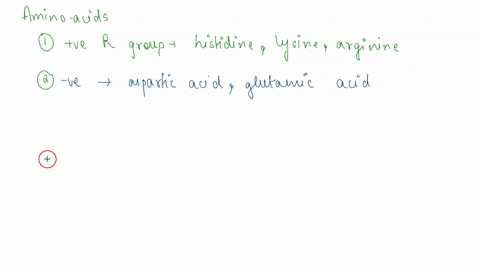 Amino acids
① +ve R group → histidine, lysine, arginine
② -ve → aspartic acid, glutamic acid
+